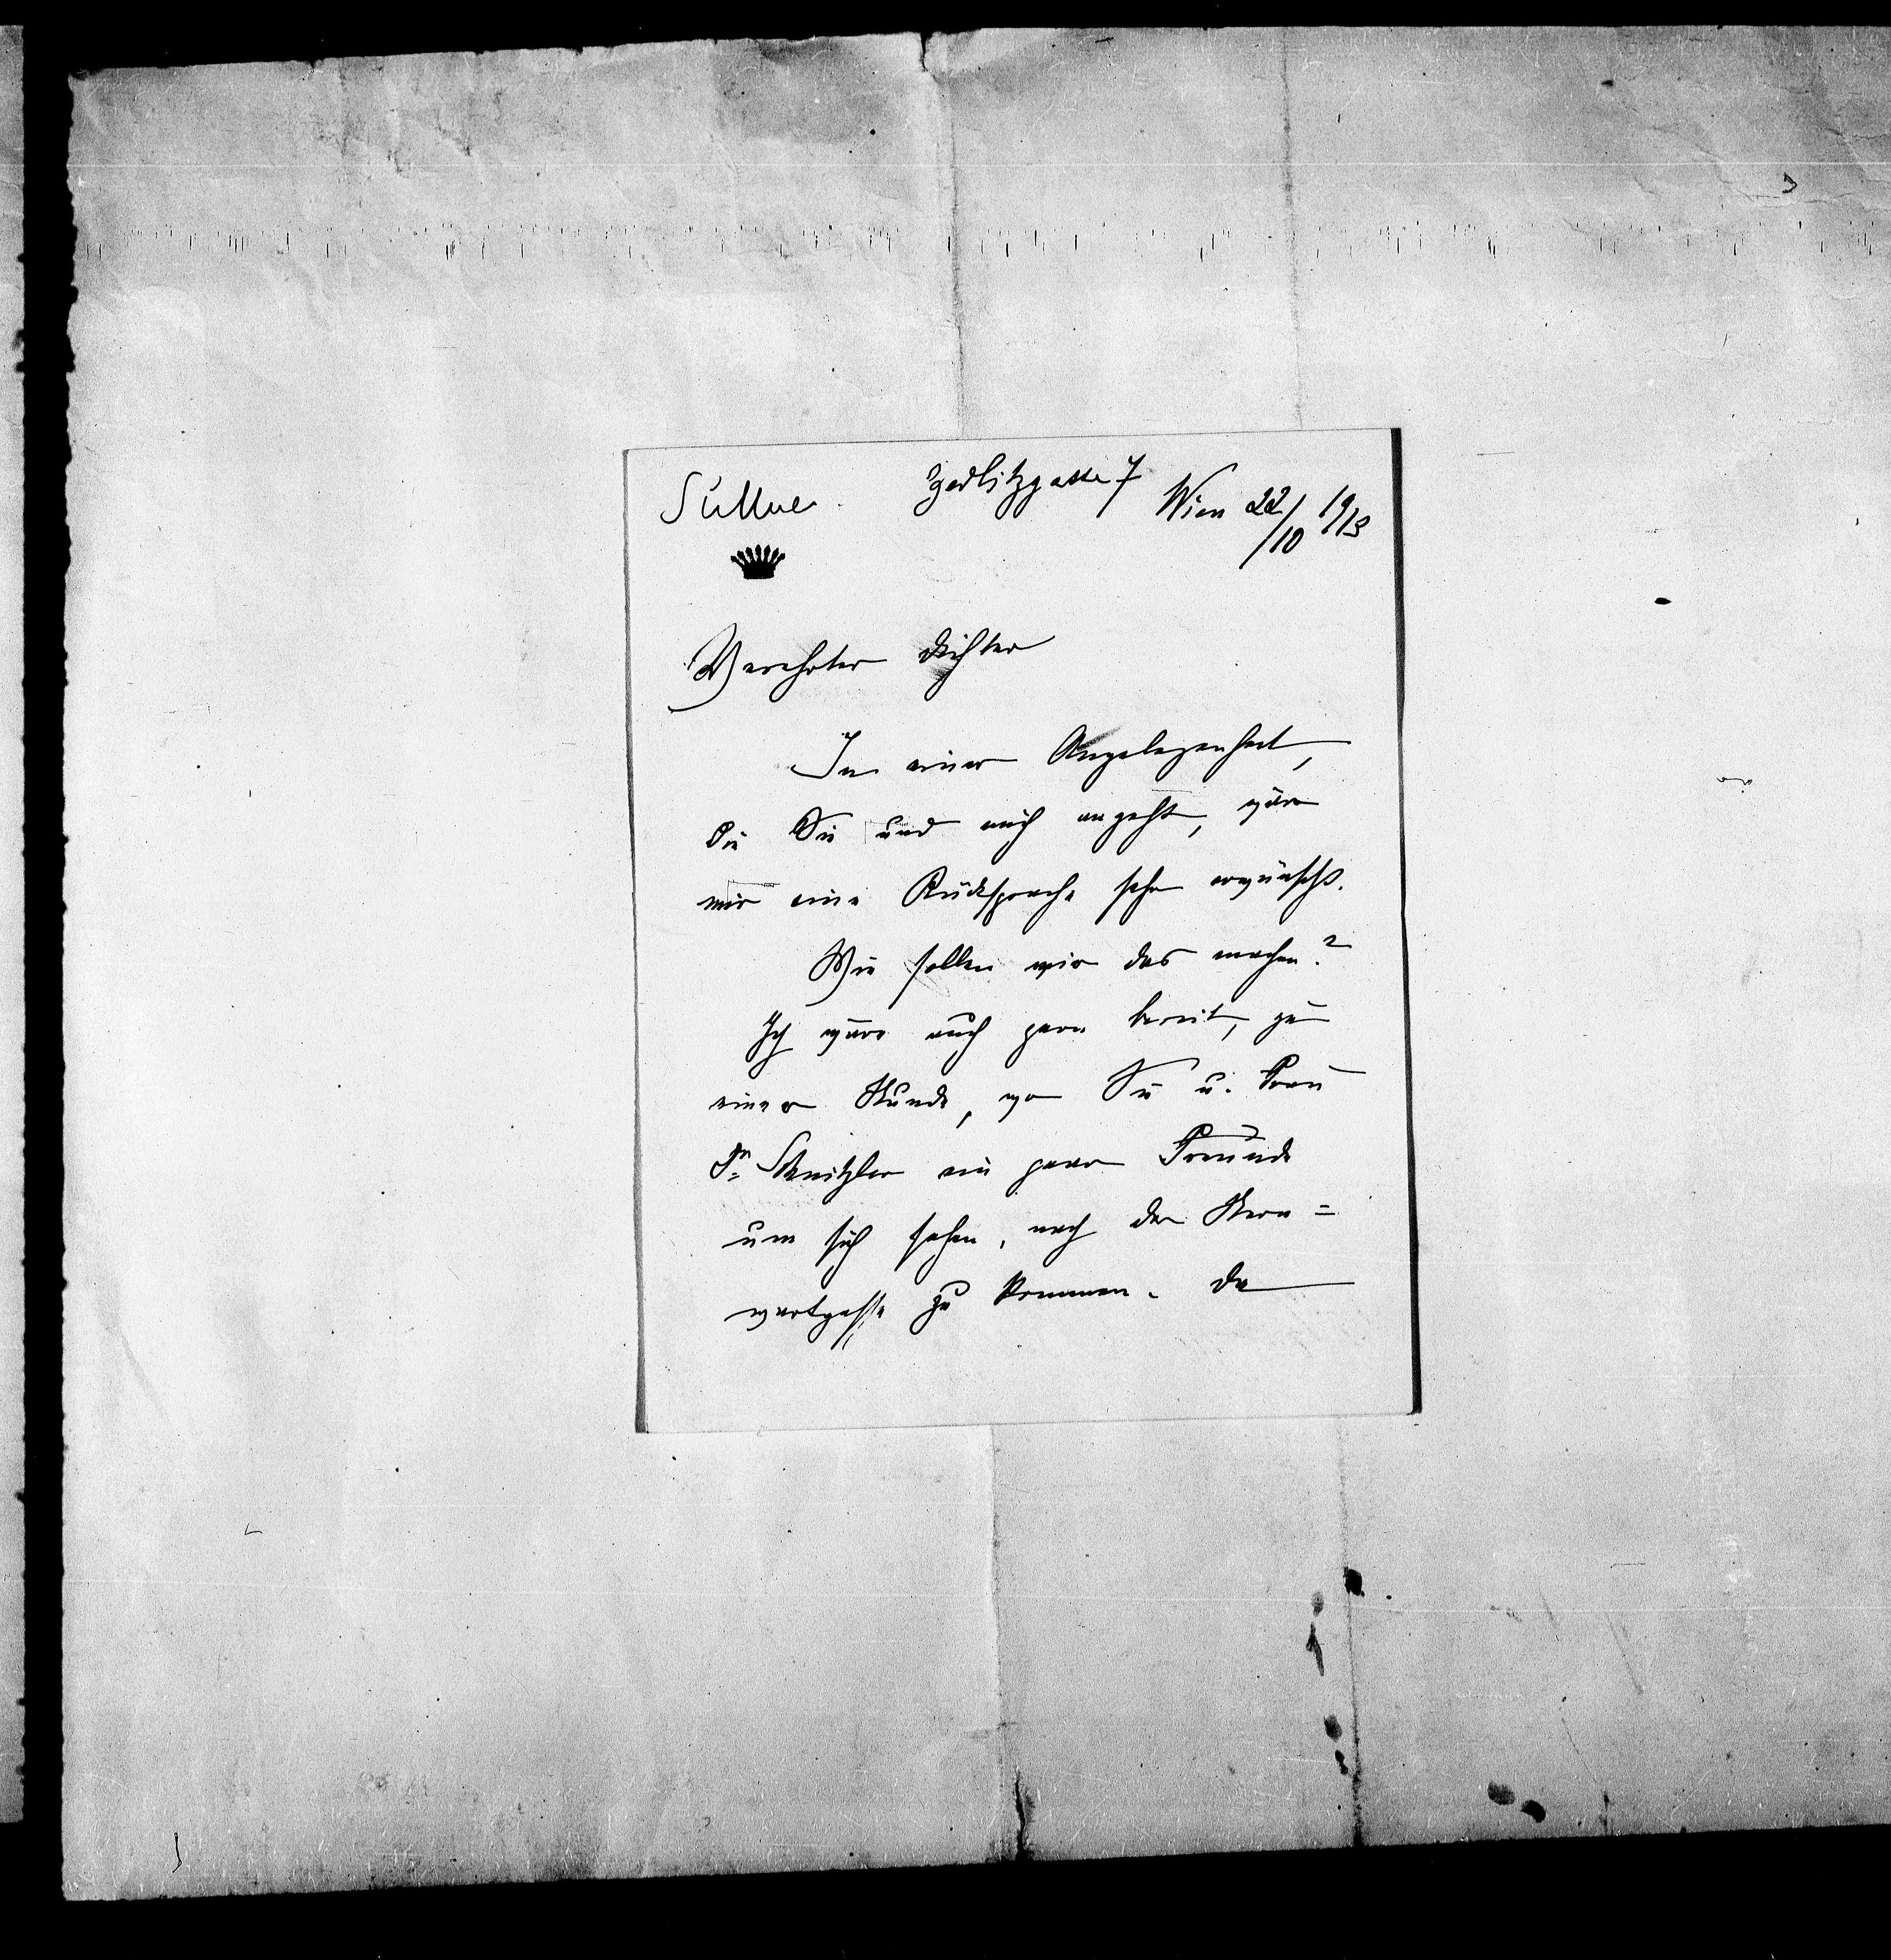 Suttner. Zedlitzgasse 7 Wien 22/10 1913
Verehrter Dichter
In einer Angelegenheit,
die Sie und mich angeht, wäre
mir eine Rücksprache sehr erwünscht.
Wie sollen wir das machen?
Ich wäre auch gern bereit, zu
einer Stunde, wo Sie u. Frau
Dr Schnitzler ein paar Freunde
um sich sehen, nach der Stern=
wartgasse zu kommen. Da